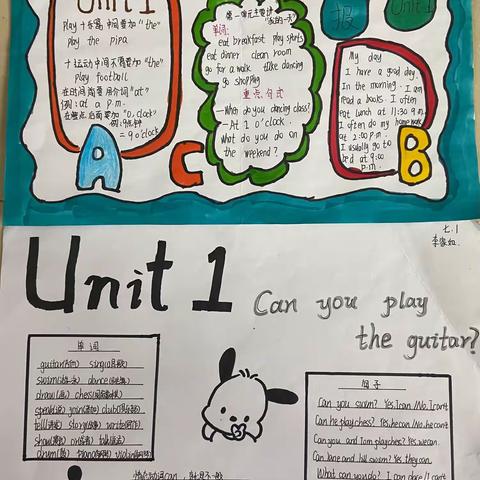 Unit 1
play + 乐器 中间要加 "the"
play the pipa
+ 运动 中间不需要加 "the"
play football
在时间前要用介词 "at"
例: at a p.m.
= 9 o'clock
A
第一单元主要讲
单词:
eat breakfast play sports
eat dinner clean room
go for a walk take dancing
go shopping
重点句式
—When do you dancing class?
—At 1 o'clock.
What do you do on
the weekend?
C
报
Unit 1
My day
I have a good day.
In the morning. I am
read a books. I often
eat lunch at 11:30 a.m.
I often do my homework
at 2:00 p.m.
I usually go to
bed at 9:00
p.m.
B
七.1
Unit 1 Can you play
the guitar?
单词
guitar(吉他) sing(唱歌)
swim(游泳) dance(跳舞)
draw(画) chess(国际象棋)
speak(说) join(参加) club(俱乐部)
tell(讲述) story(故事) write(写作)
show(展示) or(或者) talk(谈话)
drum(鼓) piano(钢琴) violin(小提琴)
句子
Can you swim? Yes,I can /No,I can't
Can he play chess? Yes,he can /No,he can't
Can you and Tom play chess? Yes we can.
Can Jane and Jill swim? Yes they can.
What can you do? I can dance/I can't
情态动词can